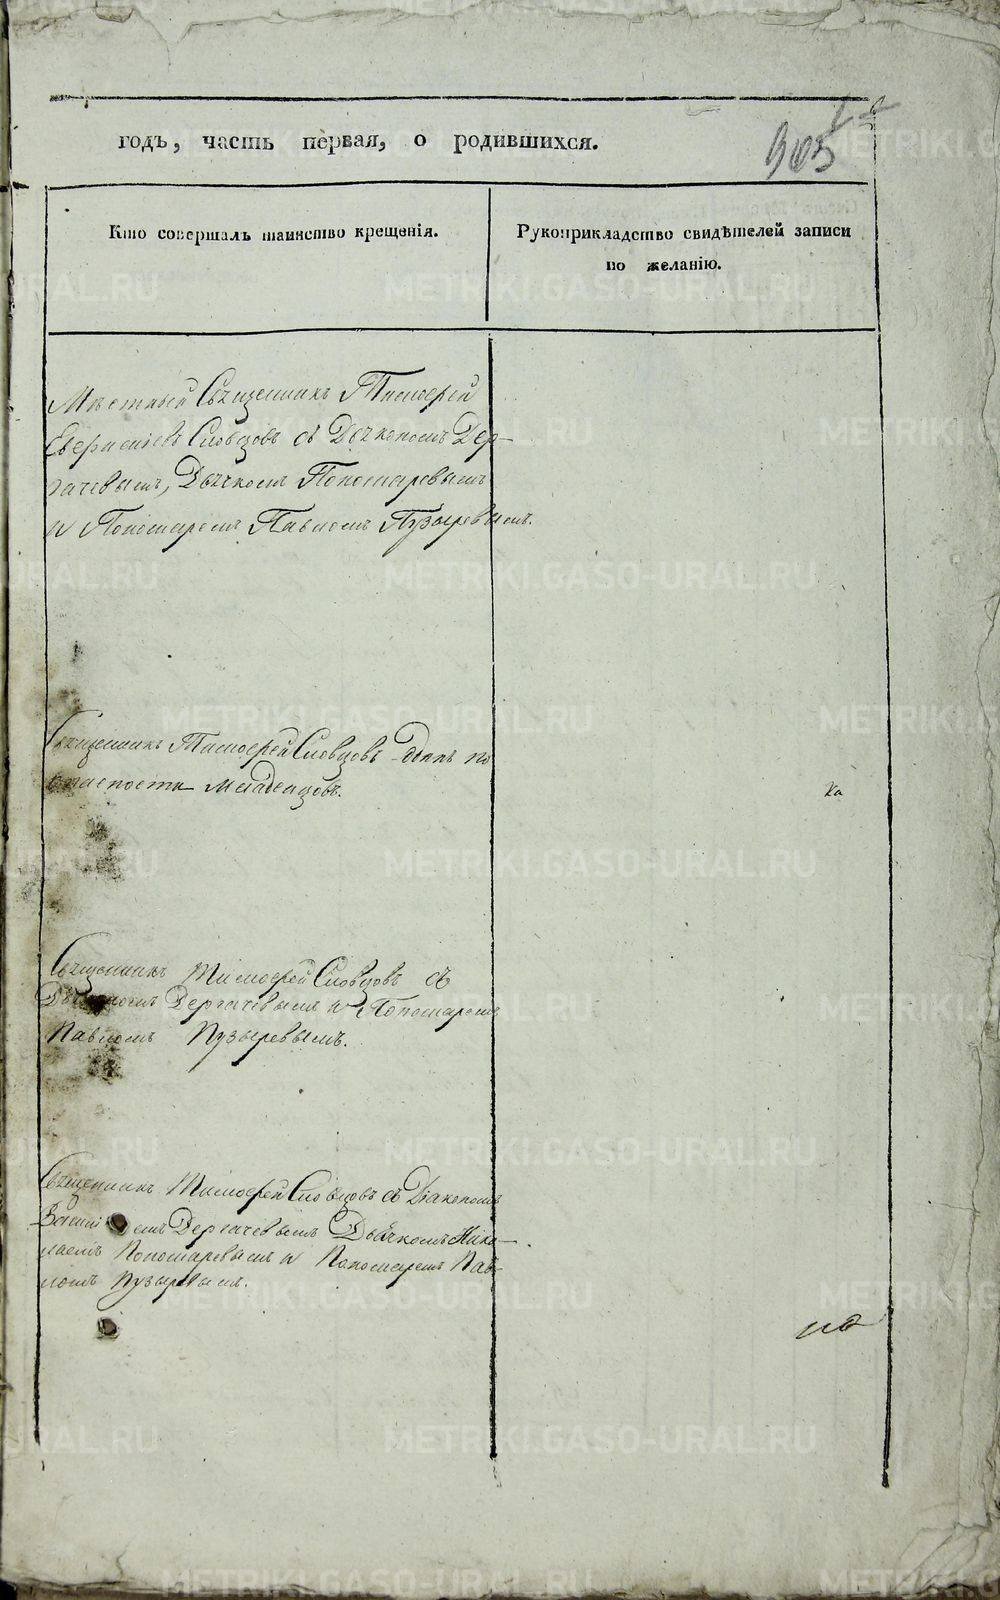 годъ, часть первая, о родившихся.
903
Кто совершалъ таинство крещенія.
Рукоприкладство свидѣтелей записи
по желанію.
Мѣстный Священникъ Тимоѳей
Словцовъ съ Дер-
гачевымъ, Дьячкомъ Пономаревымъ
и Пономаремъ Павломъ Пузыревымъ.
Священникъ Тимоѳей Словцовъ одинъ по
опасности младенцовъ.
ка
Священникъ Тимоѳей Словцовъ съ
Дергачевымъ и Пономаремъ
Павломъ Пузыревымъ.
Священникъ Тимоѳей Словцовъ съ Діакономъ
Дергачевымъ Дьячкомъ Нико-
лаемъ Пономаревымъ и Пономаремъ Пав-
ломъ Пузыревымъ.
METRIKI.GASO-URAL.RU